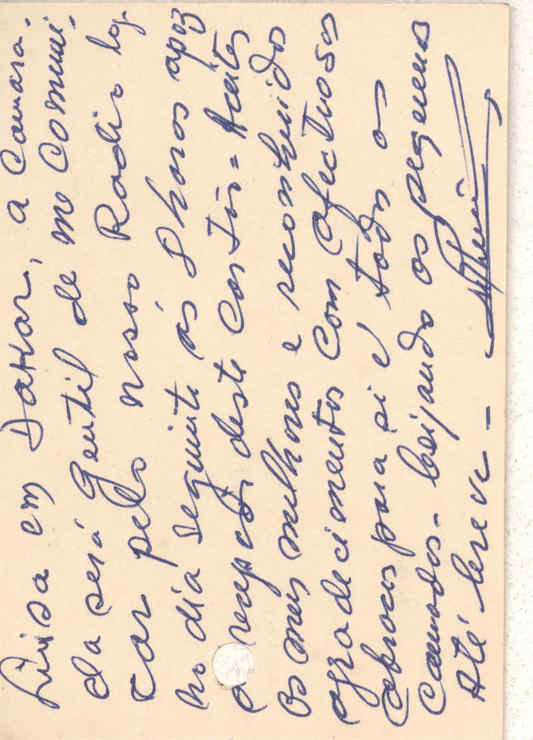 Luisa em Dakar, a Camara-
da será gentil de me comuni-
car pelo nosso Radio log
no dia seguinte ás 8 horas apoz
a recepção deste cartão = Aceites
os meus melhores e reconhecidos
agradecimentos com afectuosos
abraços para si é todos os
Camaradas - beijando os pequenos
Até breve -